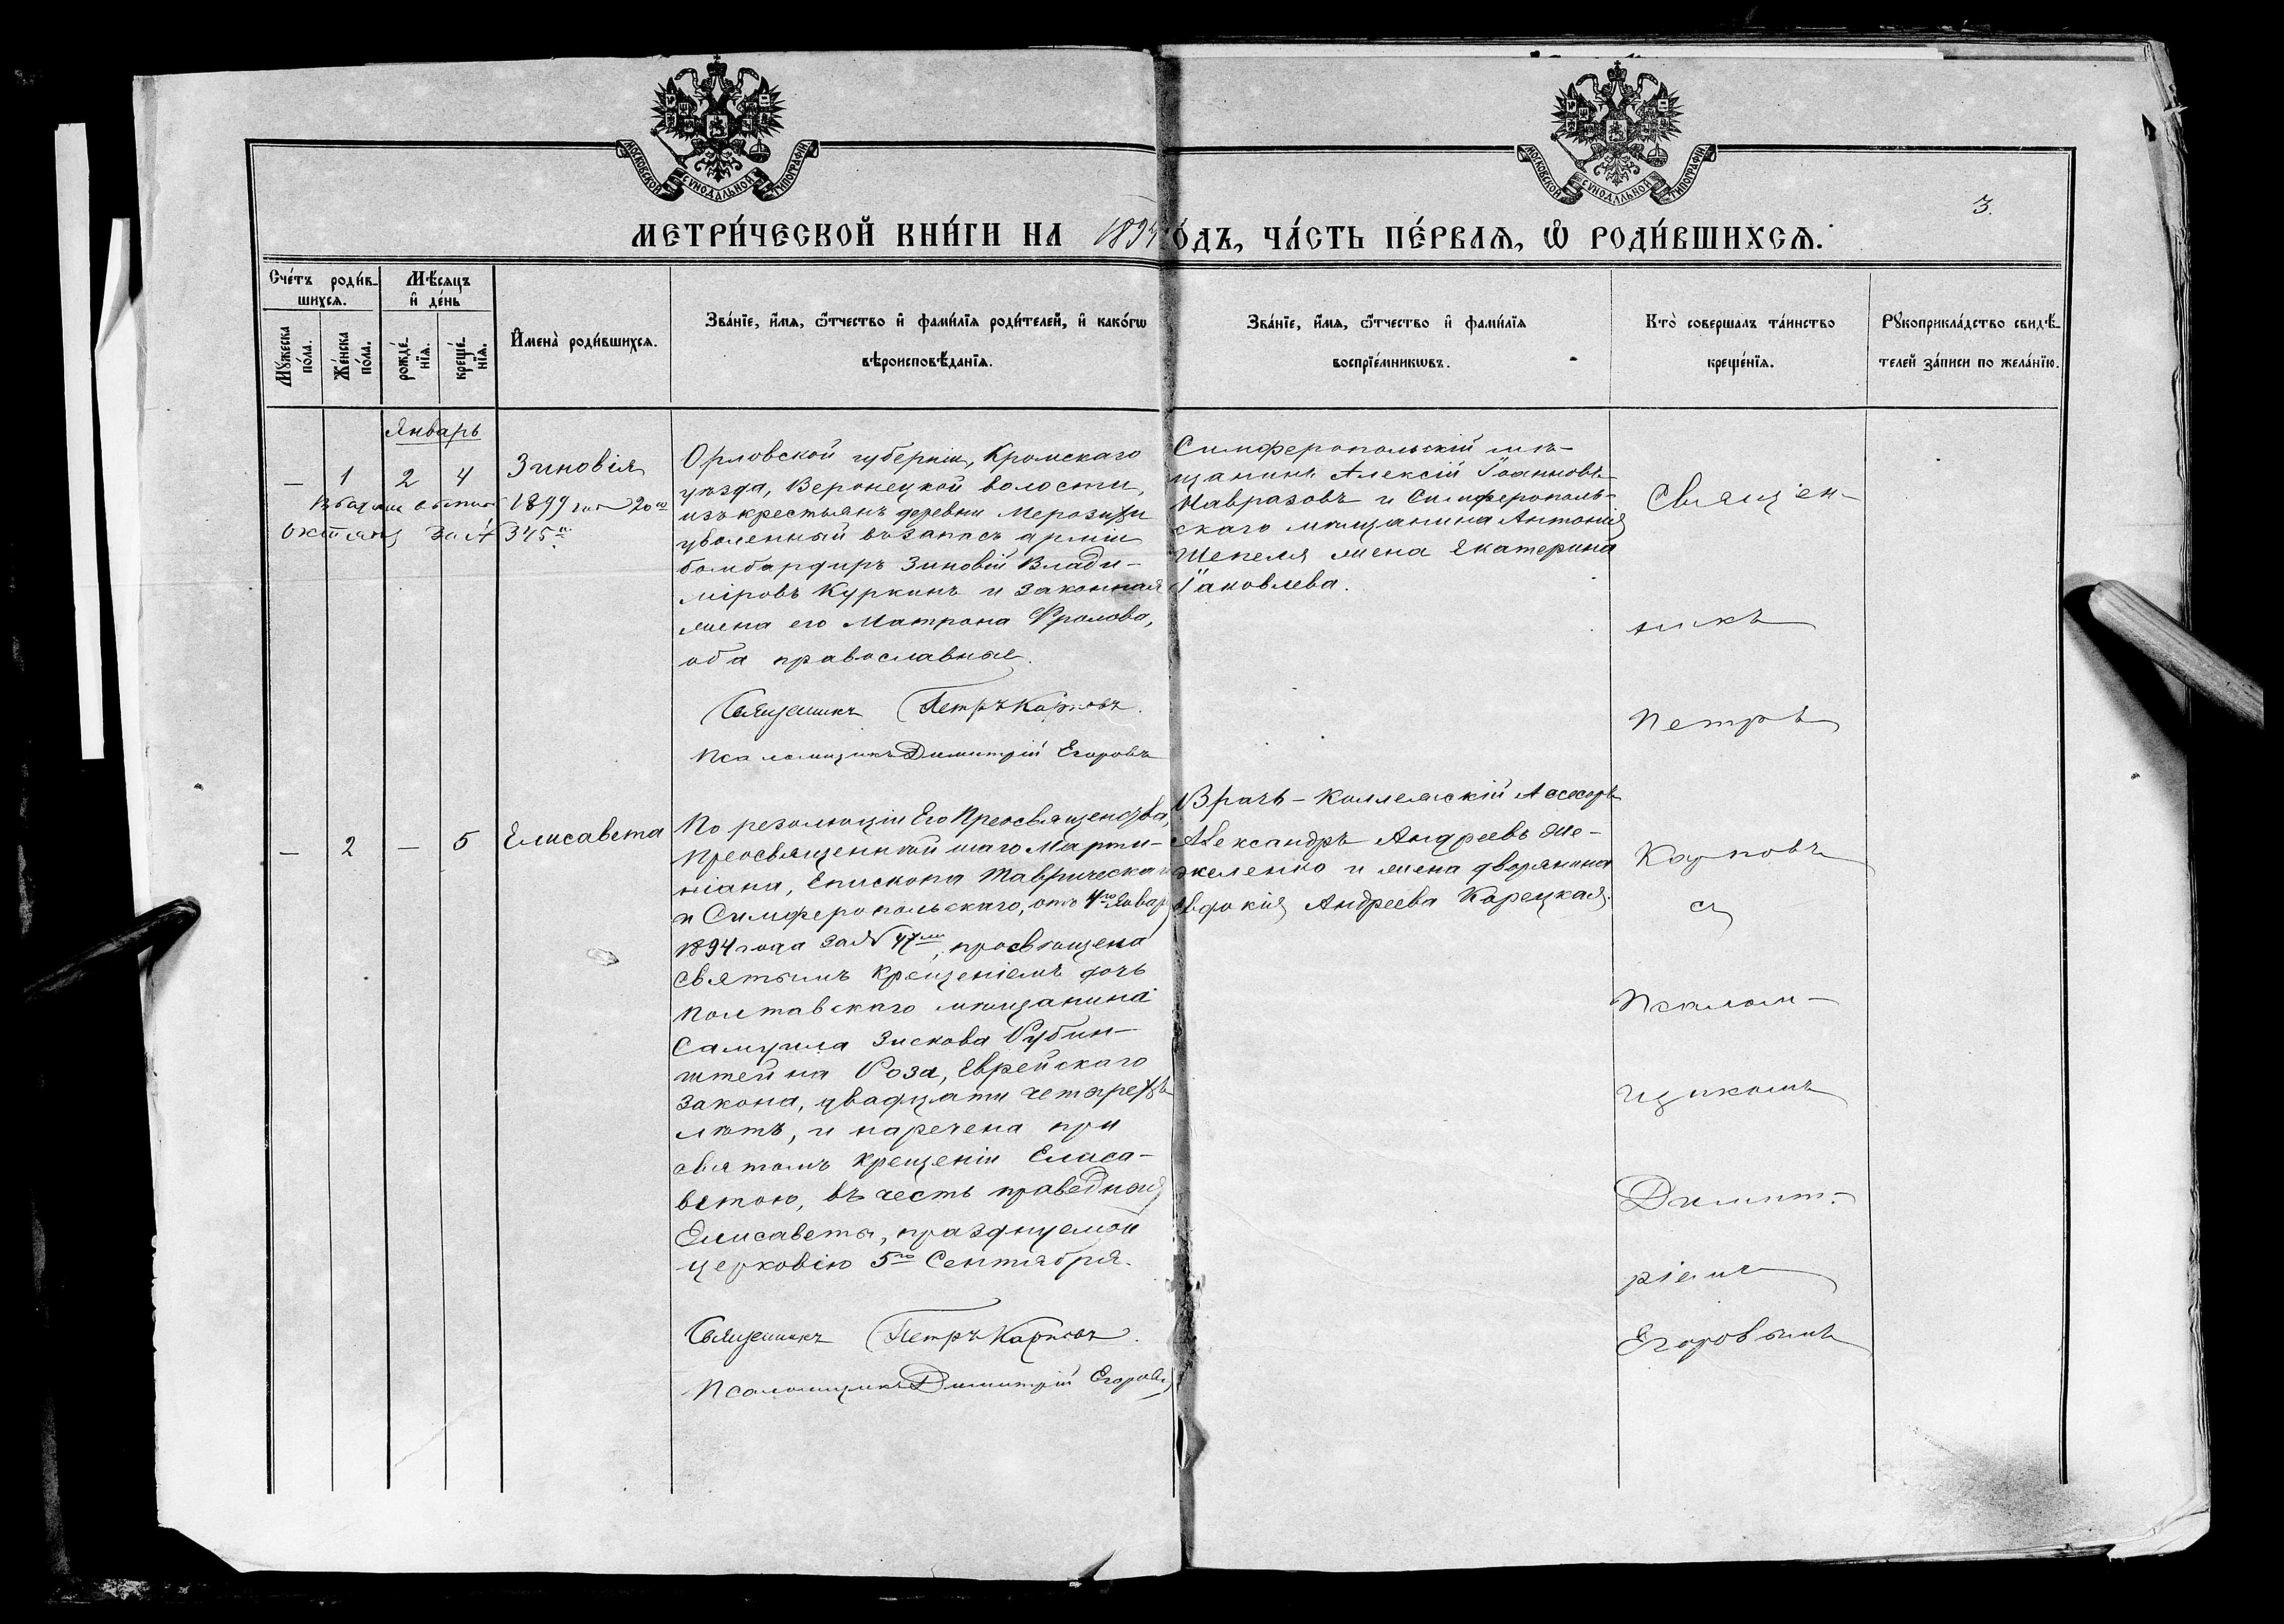 МОСКОВСКОЙ СѴНОДАЛЬНОЙ ТИПОГРАФІИ
МОСКОВСКОЙ СѴНОДАЛЬНОЙ ТИПОГРАФІИ
3.
МЕТРИ́ЧЕСКОЙ КНИ́ГИ НА 1894
О́ДЪ, ЧА́СТЬ ПЕ́РВАѦ, Ѡ҆ РОДИ́ВШИХСѦ.
Сче́тъ роди́в-
шихсѧ.
Мꙋ́жеска
по́ла.
Же́нска
по́ла.
Мѣ́сѧцъ
и҆ де́нь
рожде́-
нїѧ.
креще́-
нїѧ.
И҆мена̀ роди́вшихсѧ.
Зва́нїе, и҆́мѧ, ѻ҆́тчество и҆ фами́лїѧ роди́телей, и҆ како́гѡ
вѣроисповѣ́данїѧ.
Зва́нїе, и҆́мѧ, ѻ҆́тчество и҆ фами́лїѧ
воспрїе́мникѡвъ.
Кто̀ соверша́лъ та́инство
креще́нїѧ.
Рꙋкоприкла́дство свидѣ́-
телей за́писи по жела́нїю.
Январь
— 1 2 4 Зиновія
1899 20го
345
Орловской губерніи, Кромскаго
уѣзда, Веронецкой волости,
изъ крестьянъ деревни
уволенный въ запасъ арміи
бомбардиръ Зиновій Влади-
міровъ Куркинъ и законная
жена его Матрона Фролова,
оба православные.
Священникъ Петръ Карповъ.
Псаломщикъ Димитрій Егоровъ
Симферопольскій мѣ-
щанинъ Алексій Іоанновъ
Мавразовъ и Симферополь-
скаго мѣщанина Антонія
Шепеля жена Екатерина
Іаковлева.
Священ-
никъ
Петръ
Карповъ
съ
Псалом-
щикомъ
Димит-
ріемъ
Егоровымъ
— 2 — 5 Елисавета
По резолюціи Его Преосвященства,
Преосвященнѣйшаго Марти-
ніана, Епископа Таврическа
и Симферопольскаго, отъ 4го Январ
1894 года за № 47мъ, просвѣщена
святымъ крещеніемъ дочь
Полтавскаго мѣщанина
Самуила Зискова Рубин-
штейна Роза, Еврейскаго
закона, двадцати четырехъ
лѣтъ, и наречена при
святомъ крещеніи Елиса-
ветою, въ честь праведныя
Елисаветы, празднуемой
церковію 5го Сентября.
Священникъ Петръ Карповъ.
Псаломщикъ Димитрій Егоровъ
Врачъ - Коллежскій Асесоръ
Александръ Андреевъ Ме-
желенко и жена дворянина
Евдокія Андреева Корецкая.